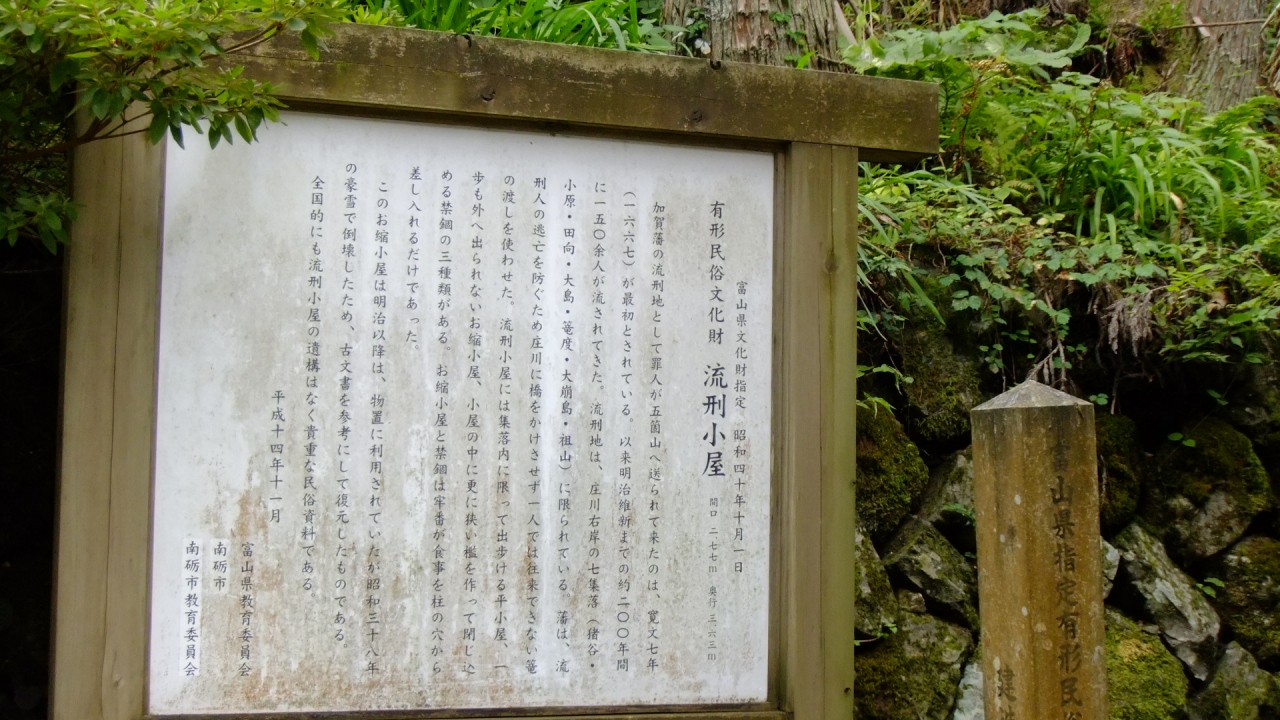 富山県文化財指定 昭和四十年十月一日
有形民俗文化財 流刑小屋 間口 二、七七m 奥行 三、六三m
加賀藩の流刑地として罪人が五箇山へ送られて来たのは、寛文七年
(一六六七)が最初とされている。以来明治維新までの約二〇〇年間
に一五〇余人が流されてきた。流刑地は、庄川右岸の七集落(猪谷・
小原・田向・大島・篭度・大崩島・祖山)に限られている。藩は、流
刑人の逃亡を防ぐため庄川に橋をかけさせず一人では往来できない篭
の渡しを使わせた。流刑小屋には集落内に限って出歩ける平小屋、一
歩も外へ出られないお縮小屋、小屋の中に更に狭い檻を作って閉じ込
める禁錮の三種類がある。お縮小屋と禁錮は牢番が食事を柱の穴から
差し入れるだけであった。
このお縮小屋は明治以降は、物置に利用されていたが昭和三十八年
の豪雪で倒壊したため、古文書を参考にして復元したものである。
全国的にも流刑小屋の遺構はなく貴重な民俗資料である。
平成十四年十一月
富山県教育委員会
南砺市
南砺市教育委員会
富山県指定有形民俗
建造